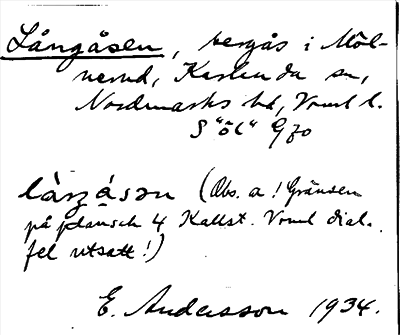 Långåsen, bergås i Möl-
nerud, Karlanda sn,
Nordmarks hd, Vrml l.
S "öl" G70
làŋgåsən (Obs. a! Gränsen
på plansch 4 Kallst. Vrml dial.
fel utsatt!)
E. Andersson 1934.